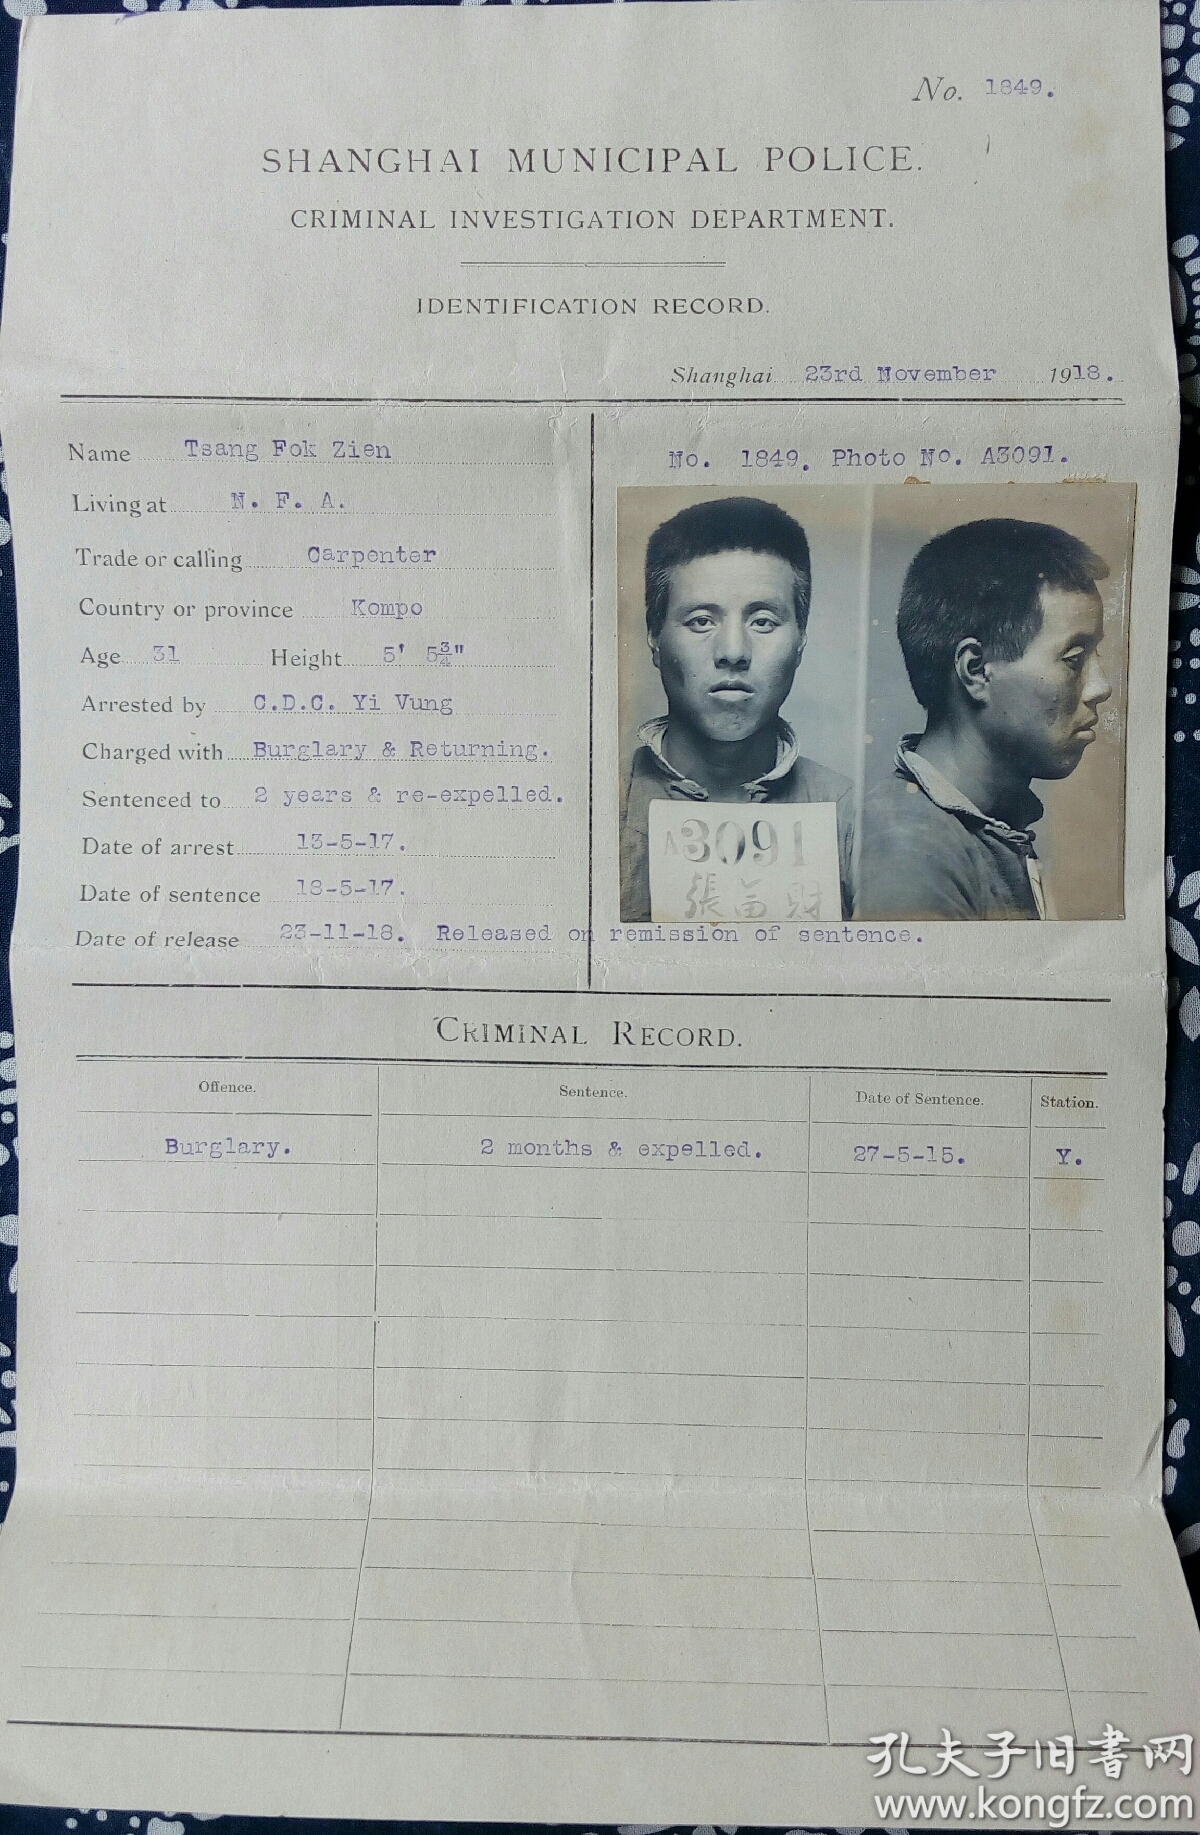 No. 1849.
SHANGHAI MUNICIPAL POLICE.
CRIMINAL INVESTIGATION DEPARTMENT.
IDENTIFICATION RECORD.
Shanghai 23rd November 1918.
Name Tsang Fok Zien
Living at N. F. A.
Trade or calling Carpenter
Country or province Kompo
Age 31 Height 5' 5¾"
Arrested by C.D.C. Yi Vung
Charged with Burglary & Returning.
Sentenced to 2 years & re-expelled.
Date of arrest 13-5-17.
Date of sentence 18-5-17.
Date of release 23-11-18. Released on remission of sentence.
No. 1849. Photo No. A3091.
A3091
張富財
CRIMINAL RECORD.
Offence. Sentence. Date of Sentence. Station.
Burglary. 2 months & expelled. 27-5-15. Y.
孔夫子旧书网
www.kongfz.com